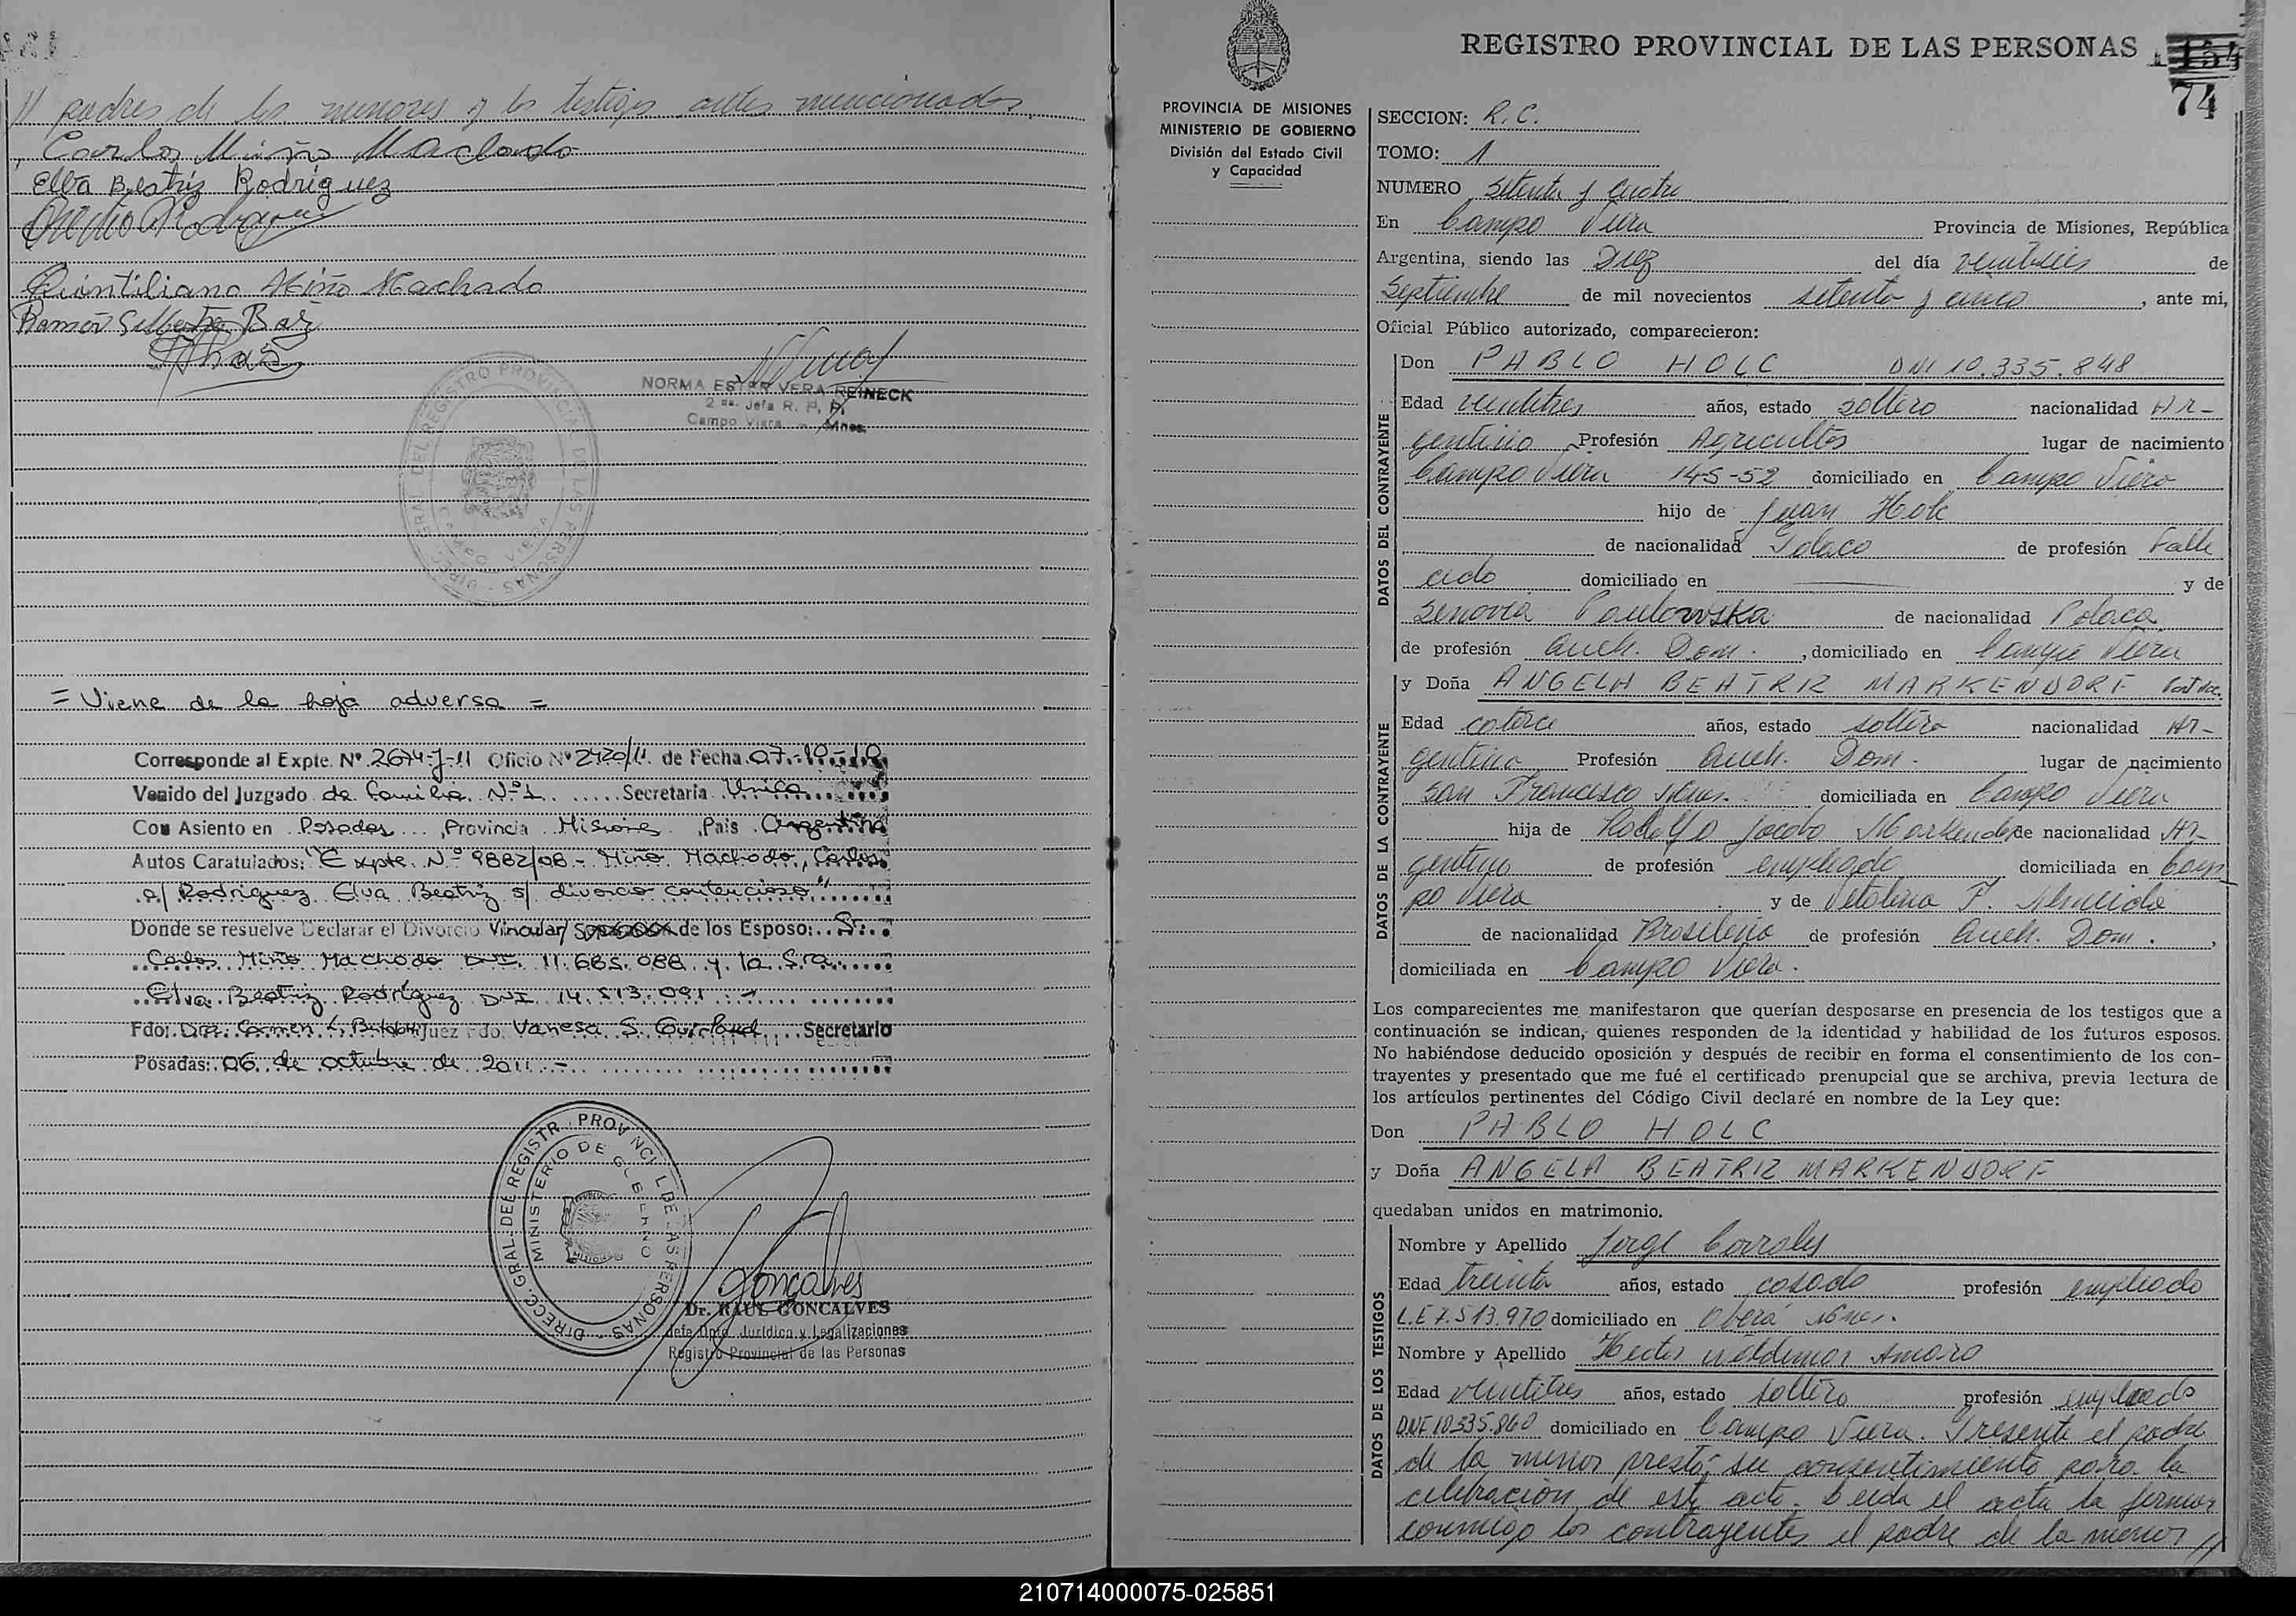 // padres de los menores y los testigos antes mencionados.
Carlos Miño Machado
Elba Beatriz Rodriguez
Quintiliano Miño Machado
Ramón
NORMA ESTER VERA REINECK
2 da. Jefa R. P. P.
Campo Viera - Mnes.
DIREC. GRAL. DEL REGISTRO PROVINCIAL DE LAS PERSONAS
= Viene de la hoja adversa =
Corresponde al Expte. Nº 2674-J-11 Oficio Nº 2420/11. de Fecha 07-10-
Venido del Juzgado de Familia Nº 1 Secretaria Unica
Con Asiento en Posadas, Provincia Misiones, Pais Argentina
Autos Caratulados: "Expte. Nº 9882/08 - Miño Machado, Carlos
c/ Rodriguez Elva Beatriz s/ divorcio contencioso"
Donde se resuelve Declarar el Divorcio Vincular/ de los Esposo: Sr.
Carlos Miño Machado DNI 11.685.088 y la Sra.
Elva Beatriz Rodríguez DNI 14.513.091.-
Fdo: Dra. Carmen Juez Fdo: Vanesa S. Secretario
Posadas: 06 de octubre de 2011.-
DIRECC. GRAL. DEL REGISTR. PROVINCIAL DE LAS PERSONAS
MINISTERIO DE GOBIERNO
Goncalves
Dr. RAUL GONCALVES
Jefe Dpto. Jurídico y Legalizaciones
Registro Provincial de las Personas
REGISTRO PROVINCIAL DE LAS PERSONAS
154
74
PROVINCIA DE MISIONES
MINISTERIO DE GOBIERNO
División del Estado Civil
y Capacidad
SECCION: R. C.
TOMO: 1
NUMERO Setenta y cuatro
En Campo Viera Provincia de Misiones, República
Argentina, siendo las Diez del día veintiséis de
Septiembre de mil novecientos setenta y cinco, ante mi,
Oficial Público autorizado, comparecieron:
DATOS DEL CONTRAYENTE
Don PABLO HOLC DNI 10.335.848
Edad veintitres años, estado soltero nacionalidad Ar-
gentino Profesión Agricultor lugar de nacimiento
Campo Viera 14-5-52 domiciliado en Campo Viera
hijo de Juan Holc
de nacionalidad Polaco de profesión Falle
cido domiciliado en —— y de
Senovia Paulowska de nacionalidad Polaca
de profesión Queh. Dom., domiciliado en Campo Viera
DATOS DE LA CONTRAYENTE
y Doña ANGELA BEATRIZ MARKENDORF
Edad catorce años, estado soltera nacionalidad Ar-
gentina Profesión Queh. Dom. lugar de nacimiento
San Francisco Mnes. domiciliada en Campo Viera
hija de Rodolfo Jacobo Markendorf de nacionalidad Ar-
gentino de profesión empleado domiciliada en Cam
po Viera y de Vitalina F. Almeida
de nacionalidad Brasileña de profesión Queh. Dom.,
domiciliada en Campo Viera.
Los comparecientes me manifestaron que querían desposarse en presencia de los testigos que a
continuación se indican, quienes responden de la identidad y habilidad de los futuros esposos.
No habiéndose deducido oposición y después de recibir en forma el consentimiento de los con-
trayentes y presentado que me fué el certificado prenupcial que se archiva, previa lectura de
los artículos pertinentes del Código Civil declaré en nombre de la Ley que:
Don PABLO HOLC
y Doña ANGELA BEATRIZ MARKENDORF
quedaban unidos en matrimonio.
DATOS DE LOS TESTIGOS
Nombre y Apellido Jorge Corrales
Edad treinta años, estado casado profesión empleado
L.E 7.513.970 domiciliado en Oberá Mnes.
Nombre y Apellido Hector Waldemar Amaro
Edad veintitres años, estado soltero profesión empleado
DNI 10.335.860 domiciliado en Campo Viera. Presente el padre
de la menor prestó su consentimiento para la
celebración de este acto. Leida el acta la firman
conmigo los contrayentes el padre de la menor //
210714000075-025851